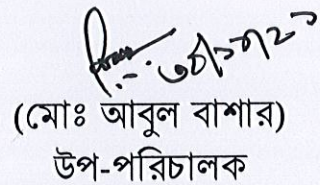 (মোঃ আবুল বাশার)
উপ-পরিচালক